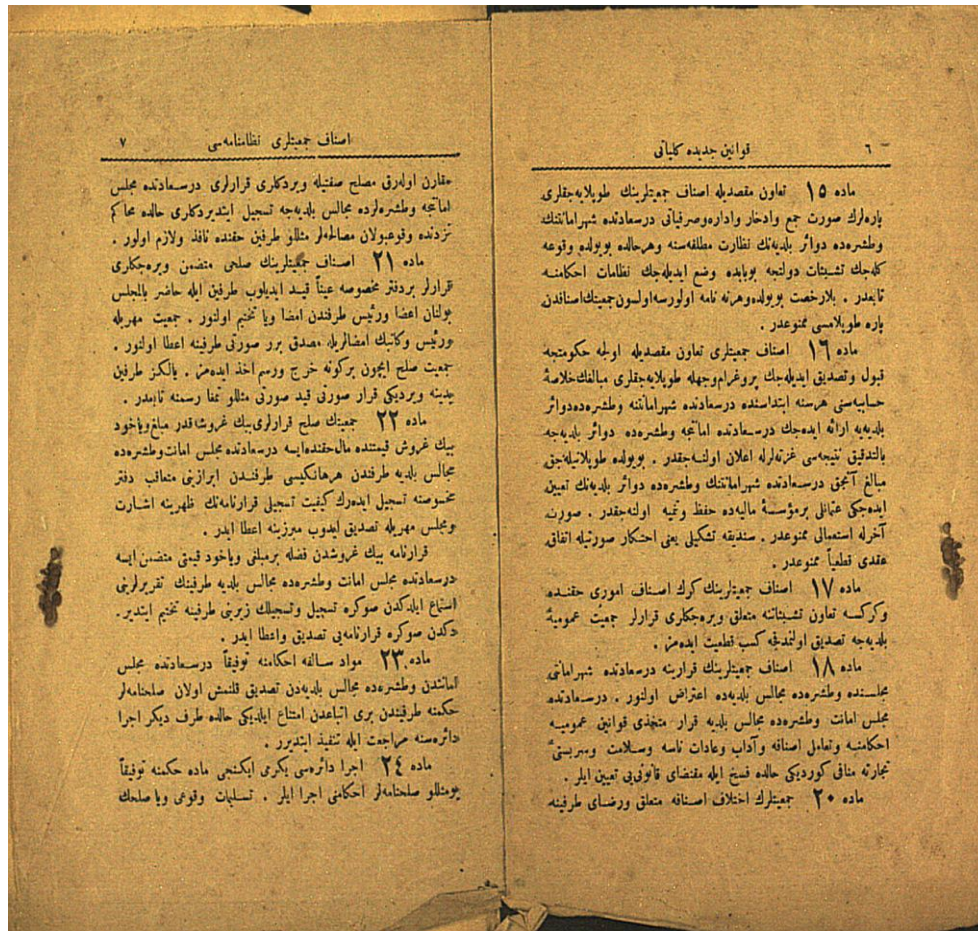 ٦ قوانین جدیده كلیاتی
ماده ١٥ تعاون مقصدیله اصناف جمعیتلرینك طوپلایه‌جقلری
پاره‌لرك صورت جمع وادخار واداره‌وصرفیاتی درسعادتده شهرامانتنك
وطشره‌ده دوائر بلدیه‌نك نظارت مطلقه‌سنه وهرحالده بویولده وقوعه
كله‌جك تشبثات دولتجه بوبابده وضع ایدیله‌جك نظامات احكامنه
تابعدر . بلارخصت بویولده‌وهرنه نامه اولورسه‌اولسون‌جمعیتك‌اصنافدن
پاره طوپلامسی ممنوعدر .
ماده ١٦ اصناف جمعیتلری تعاون مقصدیله اولجه حكومتجه
قبول وتصدیق ایدیله‌جك پروغرام‌وجهله طوپلایه‌جقلری مبالغك‌خلاصهٔ
حسابیه‌سنی هرسنه ابتداسنده درسعادتده شهرامانتنه وطشره‌ده‌دوائر
بلدیه‌یه ارائه ایده‌جك درسعادتده امانتجه وطشره‌ده دوائر بلدیه‌جه
بالتدقیق نتیجه‌سی غزته‌لرله اعلان اولنه‌جقدر . بویولده طوپلانیله‌جق
مبالغ آنجق درسعادتده شهرامانتنك وطشره‌ده دوائر بلدیه‌نك تعیین
ایده‌جكی عثمانلی برمؤسسهٔ مالیه‌ده حفظ وتنمیه اولنه‌جقدر . صورت
آخرله استعمالی ممنوعدر . سندیقه تشكیلی یعنی احتكار صورتیله اتفاق
عقدی قطعیاً ممنوعدر .
ماده ١٧ اصناف جمعیتلرینك كرك اصناف اموری حقنده
وكركسه تعاون تشبثاتنه متعلق ویره‌جكاری قرارلر جمعیت عمومیهٔ
بلدیه‌جه تصدیق اولنمدقجه كسب قطعیت ایده‌مز .
ماده ١٨ اصناف جمعیتلرینك قرارینه درسعادتده شهرامانتی
مجلسنده وطشره‌ده مجالس بلدیه‌ده اعتراض اولنور . درسعادتده
مجلس امانت وطشره‌ده مجالس بلدیه قرار متخذی قوانین عمومیه
احكامنه وتعامل اصنافه وآداب وعادات ناسه وسلامت وسربستیٔ
تجارته منافی كوردیكی حالده فسخ ایله مقتضای قانونی‌یی تعیین ایلر .
ماده ٢٠ جمعیتلرك اختلاف اصنافه متعلق ورضای طرفینه
اصناف جمعیتلری نظامنامه‌سی ٧
مقارن اوله‌رق مصلح صفتیله ویردكاری قرارلری درسعادتده مجلس
امانتجه وطشره‌لرده مجالس بلدیه‌جه تسجیل ایتدیردكلری حالده محاكم
نزدنده وقوعبولان مصالحه‌لر مثللو طرفین حقنده نافذ ولازم اولور .
ماده ٢١ اصناف جمعیتلرینك صلحی متضمن ویره‌جكاری
قرارلر بردفتر مخصوصه عیناً قید ایدیلوب طرفین ایله حاضر بالمجلس
بولنان اعضا ورئیس طرفندن امضا ویا تختیم اولنور . جمعیت مهریله
ورئیس وكاتبك امضالریله مصدق برر صورتی طرفینه اعطا اولنور .
جمعیت صلح ایچون بركونه خرج ورسم اخذ ایده‌مز . یالكز طرفین
یدینه ویردیكی قرار صورتی قید صورتی مثللو تمغا رسمنه تابعدر .
ماده ٢٢ جمعیتك صلح قرارلری‌بیك غروشه‌قدر مبلغ‌ویاخود
بیك غروش قیمتنده مال‌حقنده‌ایسه درسعادتده مجلس امانت‌وطشره‌ده
مجالس بلدیه طرفندن هرهانكیسی طرفندن ابرازینی متعاقب دفتر
مخصوصنه تسجیل ایده‌رك كیفیت تسجیلی قرارنامه‌نك ظهرینه اشارت
ومجلس مهریله تصدیق ایدوب مبرزینه اعطا ایدر .
قرارنامه بیك غروشدن فضله برمبلغی ویاخود قیمتی متضمن ایسه
درسعادتده مجلس امانت وطشره‌ده مجالس بلدیه طرفینك تقریرلرینی
استماع ایلدكدن صوكره تسجیل وتسجیلك زیرینی طرفینه تختیم ایتدیر-
دكدن صوكره قرارنامه‌یی تصدیق واعطا ایدر .
ماده ٢٣ مواد سالفه احكامنه توفیقاً درسعادتده مجلس
امانتدن وطشره‌ده مجالس بلدیه‌دن تصدیق قلنمش اولان صلحنامه‌لر
حكمنه طرفیندن بری اتباعدن امتناع ایلدیكی حالده طرف دیكر اجرا
دائره‌سنه مراجعت ایله تنفیذ ایتدیرر .
ماده ٢٤ اجرا دائره‌سی یكرمی ایكنجی ماده حكمنه توفیقاً
بومثللو صلحنامه‌لر احكامنی اجرا ایلر . تسلیمات وقوعی ویا صلحك